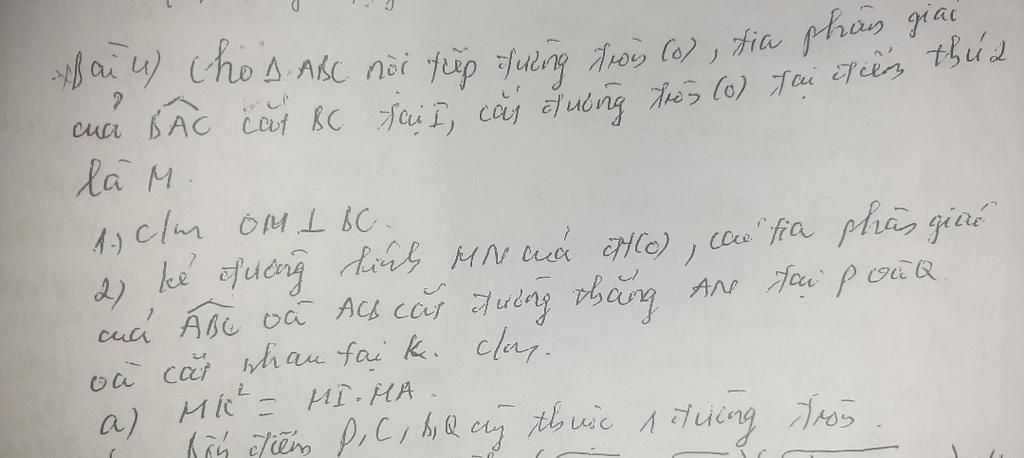 Bài 4) Cho Δ ABC nội tiếp đường tròn (O), tia phân giác
của BAC cắt BC tại I, cắt đường tròn (O) tại điểm thứ 2
là M.
1.) C/m OM ⊥ BC.
2) kẻ đường kính MN của đt(O), các tia phân giác
của ABC và ACB cắt đường thẳng AN tại P và Q
và cắt nhau tại K. C/m.
a) MK² = MI.MA.
điểm P, C, B, Q cùng thuộc 1 đường tròn.